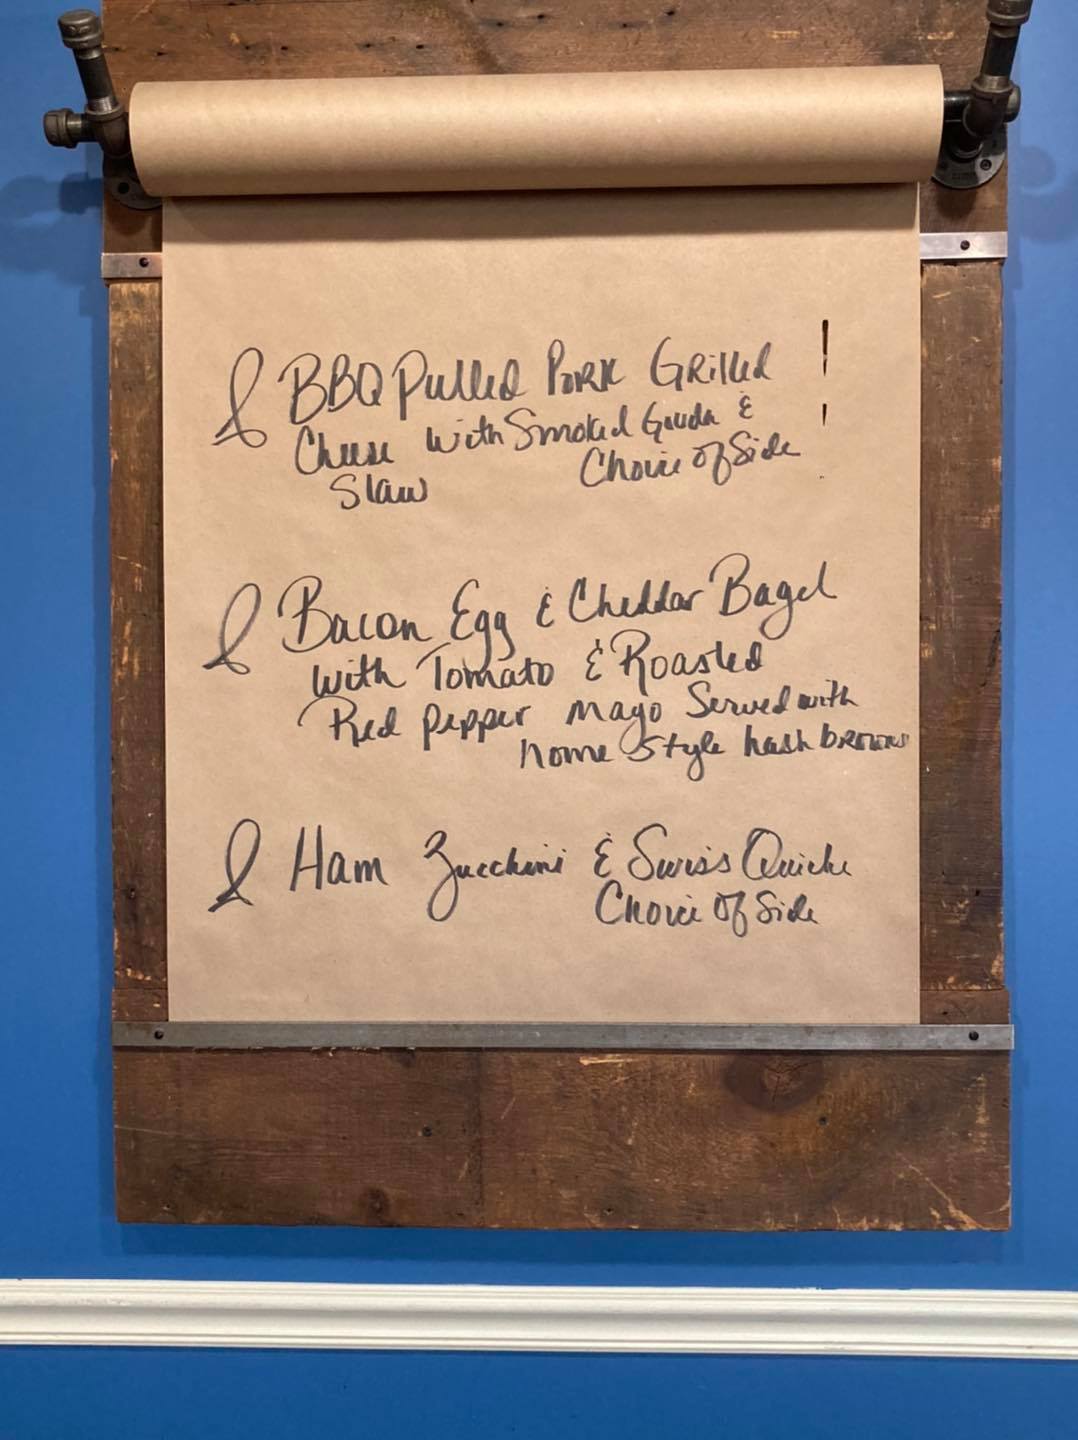 BBQ Pulled Pork Grilled
Cheese with Smoked Gouda &
Slaw Choice of Side
Bacon Egg & Cheddar Bagel
with Tomato & Roasted
Red pepper mayo Served with
home style hash browns
Ham Zucchini & Swiss Quiche
Choice of Side